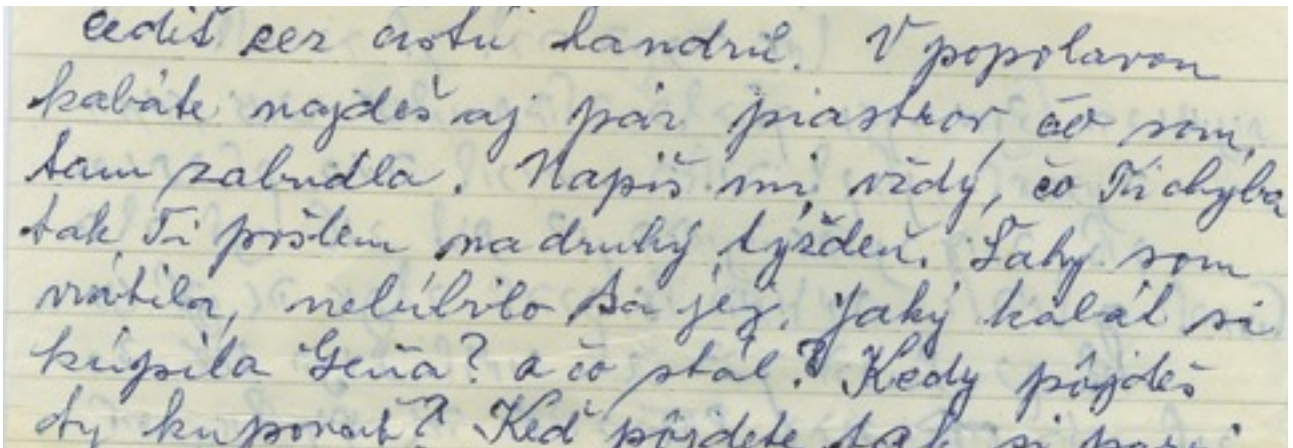 cediš cez čistú handru. V popolavom
kabáte najdeš aj pár piastrov, čo som
tam zabudla. Napíš mi vždy, čo Ti chýba
tak Ti pošlem na druhý týždeň. Šaty som
vrátila, nelúbilo sa jej. Jaký kabát si
kúpila Geňa? a čo stál? Kedy pôjdeš
ty kupovat? Keď pôjdete tak si